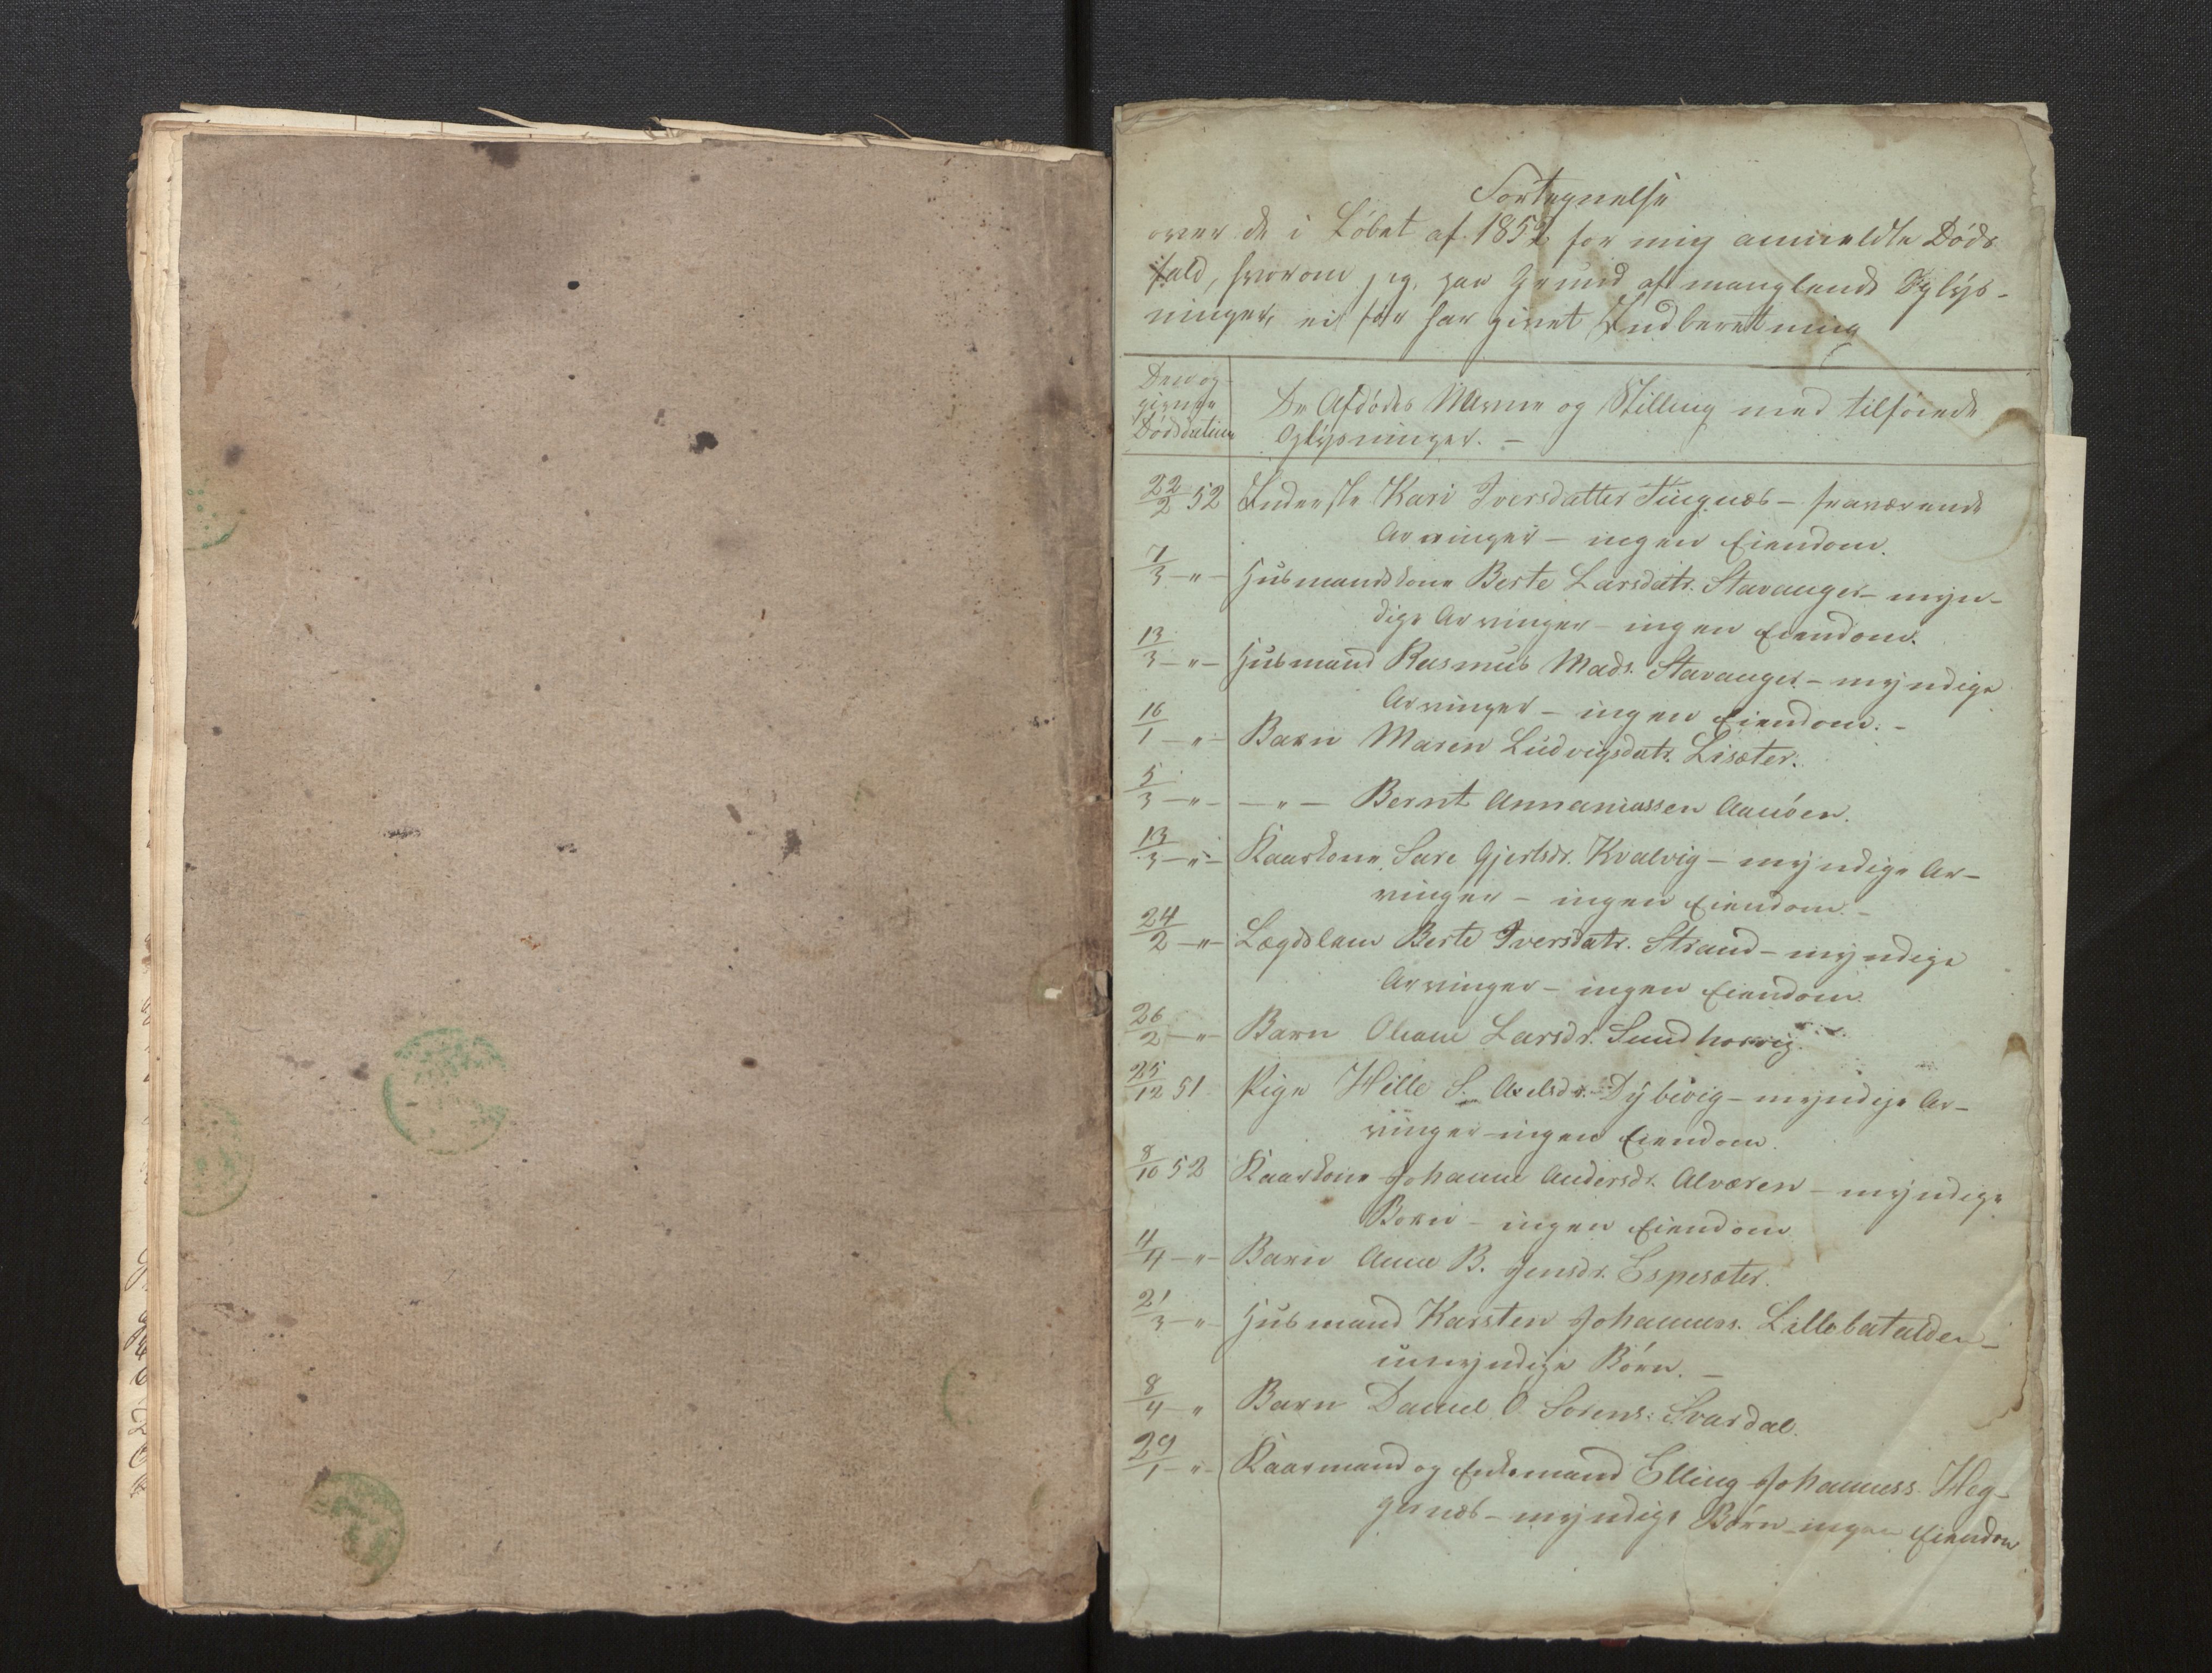 Fortegnelse
over de i Løbet af 1852 for mig anmeldte Døds
fald, hvorom jeg, paa Grund af manglende Oplys-
ninger, ei før har givet Indberetning
Den op-
givne
Dødsdatum
De Afdødes Navne og Stilling med tilføiede
Oplysninger. -
22/2 52 Inderste Kari Iversdatter Tingnæs - fraværende
Arvinger - ingen Eiendom.
7/3 -"- Huusmandskone Berte Larsdatr. Stavanger - myn-
dige Arvinger - ingen Eiendom.
13/3 -"- Huusmand Rasmus Mads. Stavanger - myndige
Arvinger - ingen Eiendom. -
16/1 -"- Barn Maren Ludvigsdatr. Lisæter.
5/3 -"- -"- Bernt Annaniassen Aanøen.
13/3 -"- Kaarkone Sare Gjertsdr. Kvalvig - myndige Ar-
vinger - ingen Eiendom. -
24/2 -"- Lægdslem Berte Iversdatr. Strand - myndige
Arvinger - ingen Eiendom.
26/2 -"- Barn Oliane Larsdr. Sundhorvig.
25/12 51 Pige Hille S. Axelsdr. Dybevig - myndige Ar-
vinger - ingen Eiendom.
8/10 52 Kaarkone Johanne Andersdr. Alværen - myndige
Børn - ingen Eiendom
4/4 -"- Barn Anne B. Jensdr. Espesæter.
21/3 -"- Huusmand Karsten Johanness. Lillebatalden -
umyndige Børn. -
8/4 -"- Barn Daniel O. Sørens. Svardal.
29/1 -"- Kaarmand og Enkemand Elling Johanness. Heg-
gernæs - myndige Børn - ingen Eiendom